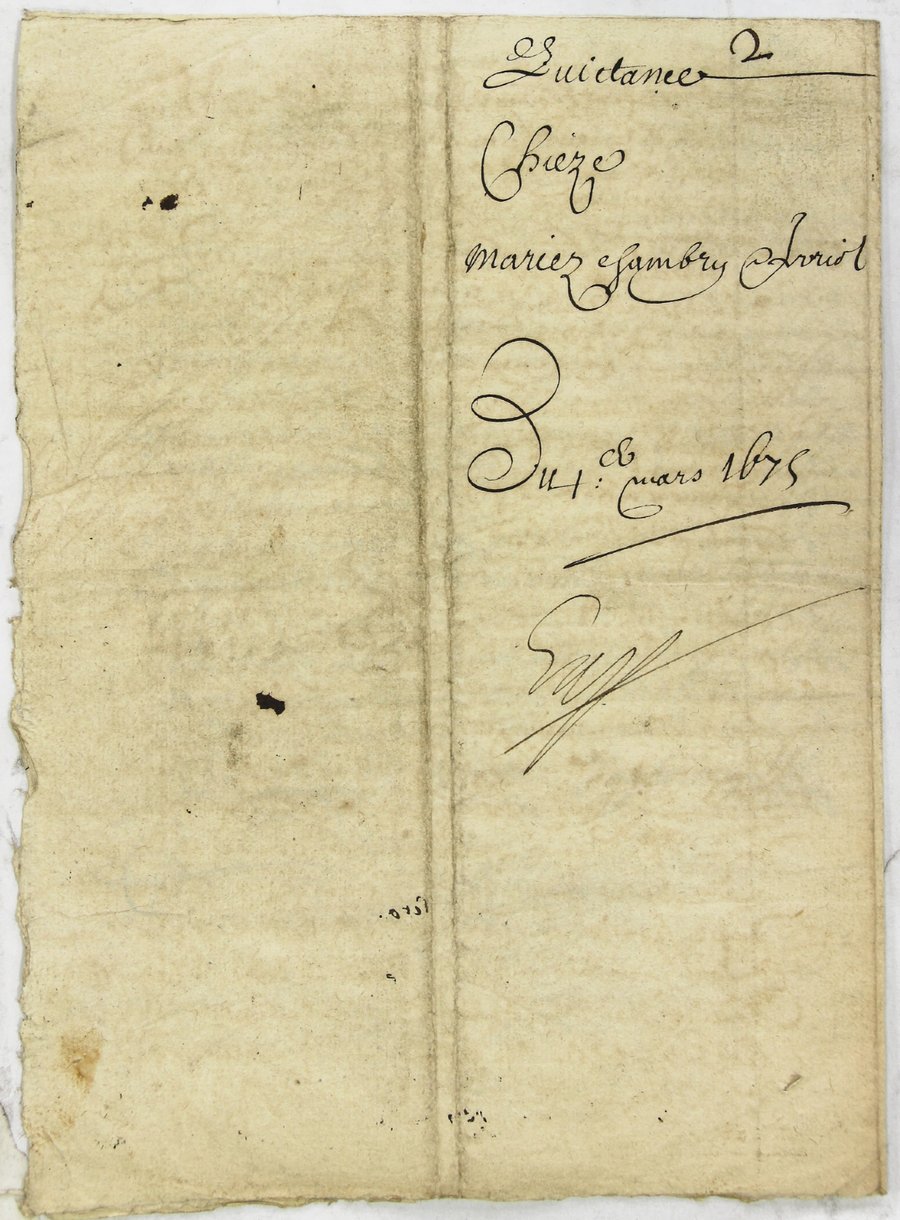 Quictance 2
Chieze
mariez chambry
Du 4e: mars 1675